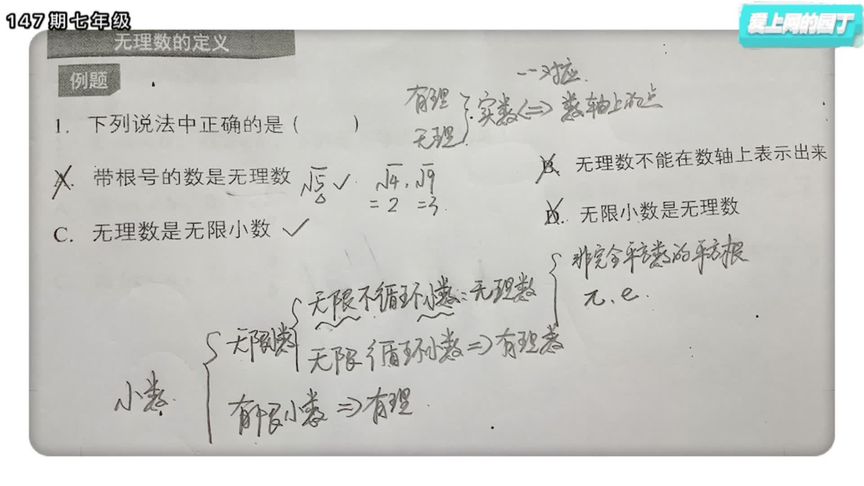 147期七年级
爱上网的园丁
无理数的定义
例题
一一对应
有理
无理
实数⟺数轴上的点
1. 下列说法中正确的是（ ）
A. 带根号的数是无理数 √5 ✓ √4，√9
=2 =3
B. 无理数不能在数轴上表示出来
C. 无理数是无限小数 ✓
D. 无限小数是无理数
非完全平方数的平方根
π、e.
无限不循环小数：无理数
无限小数
无限循环小数⇒有理数
小数
有限小数⇒有理